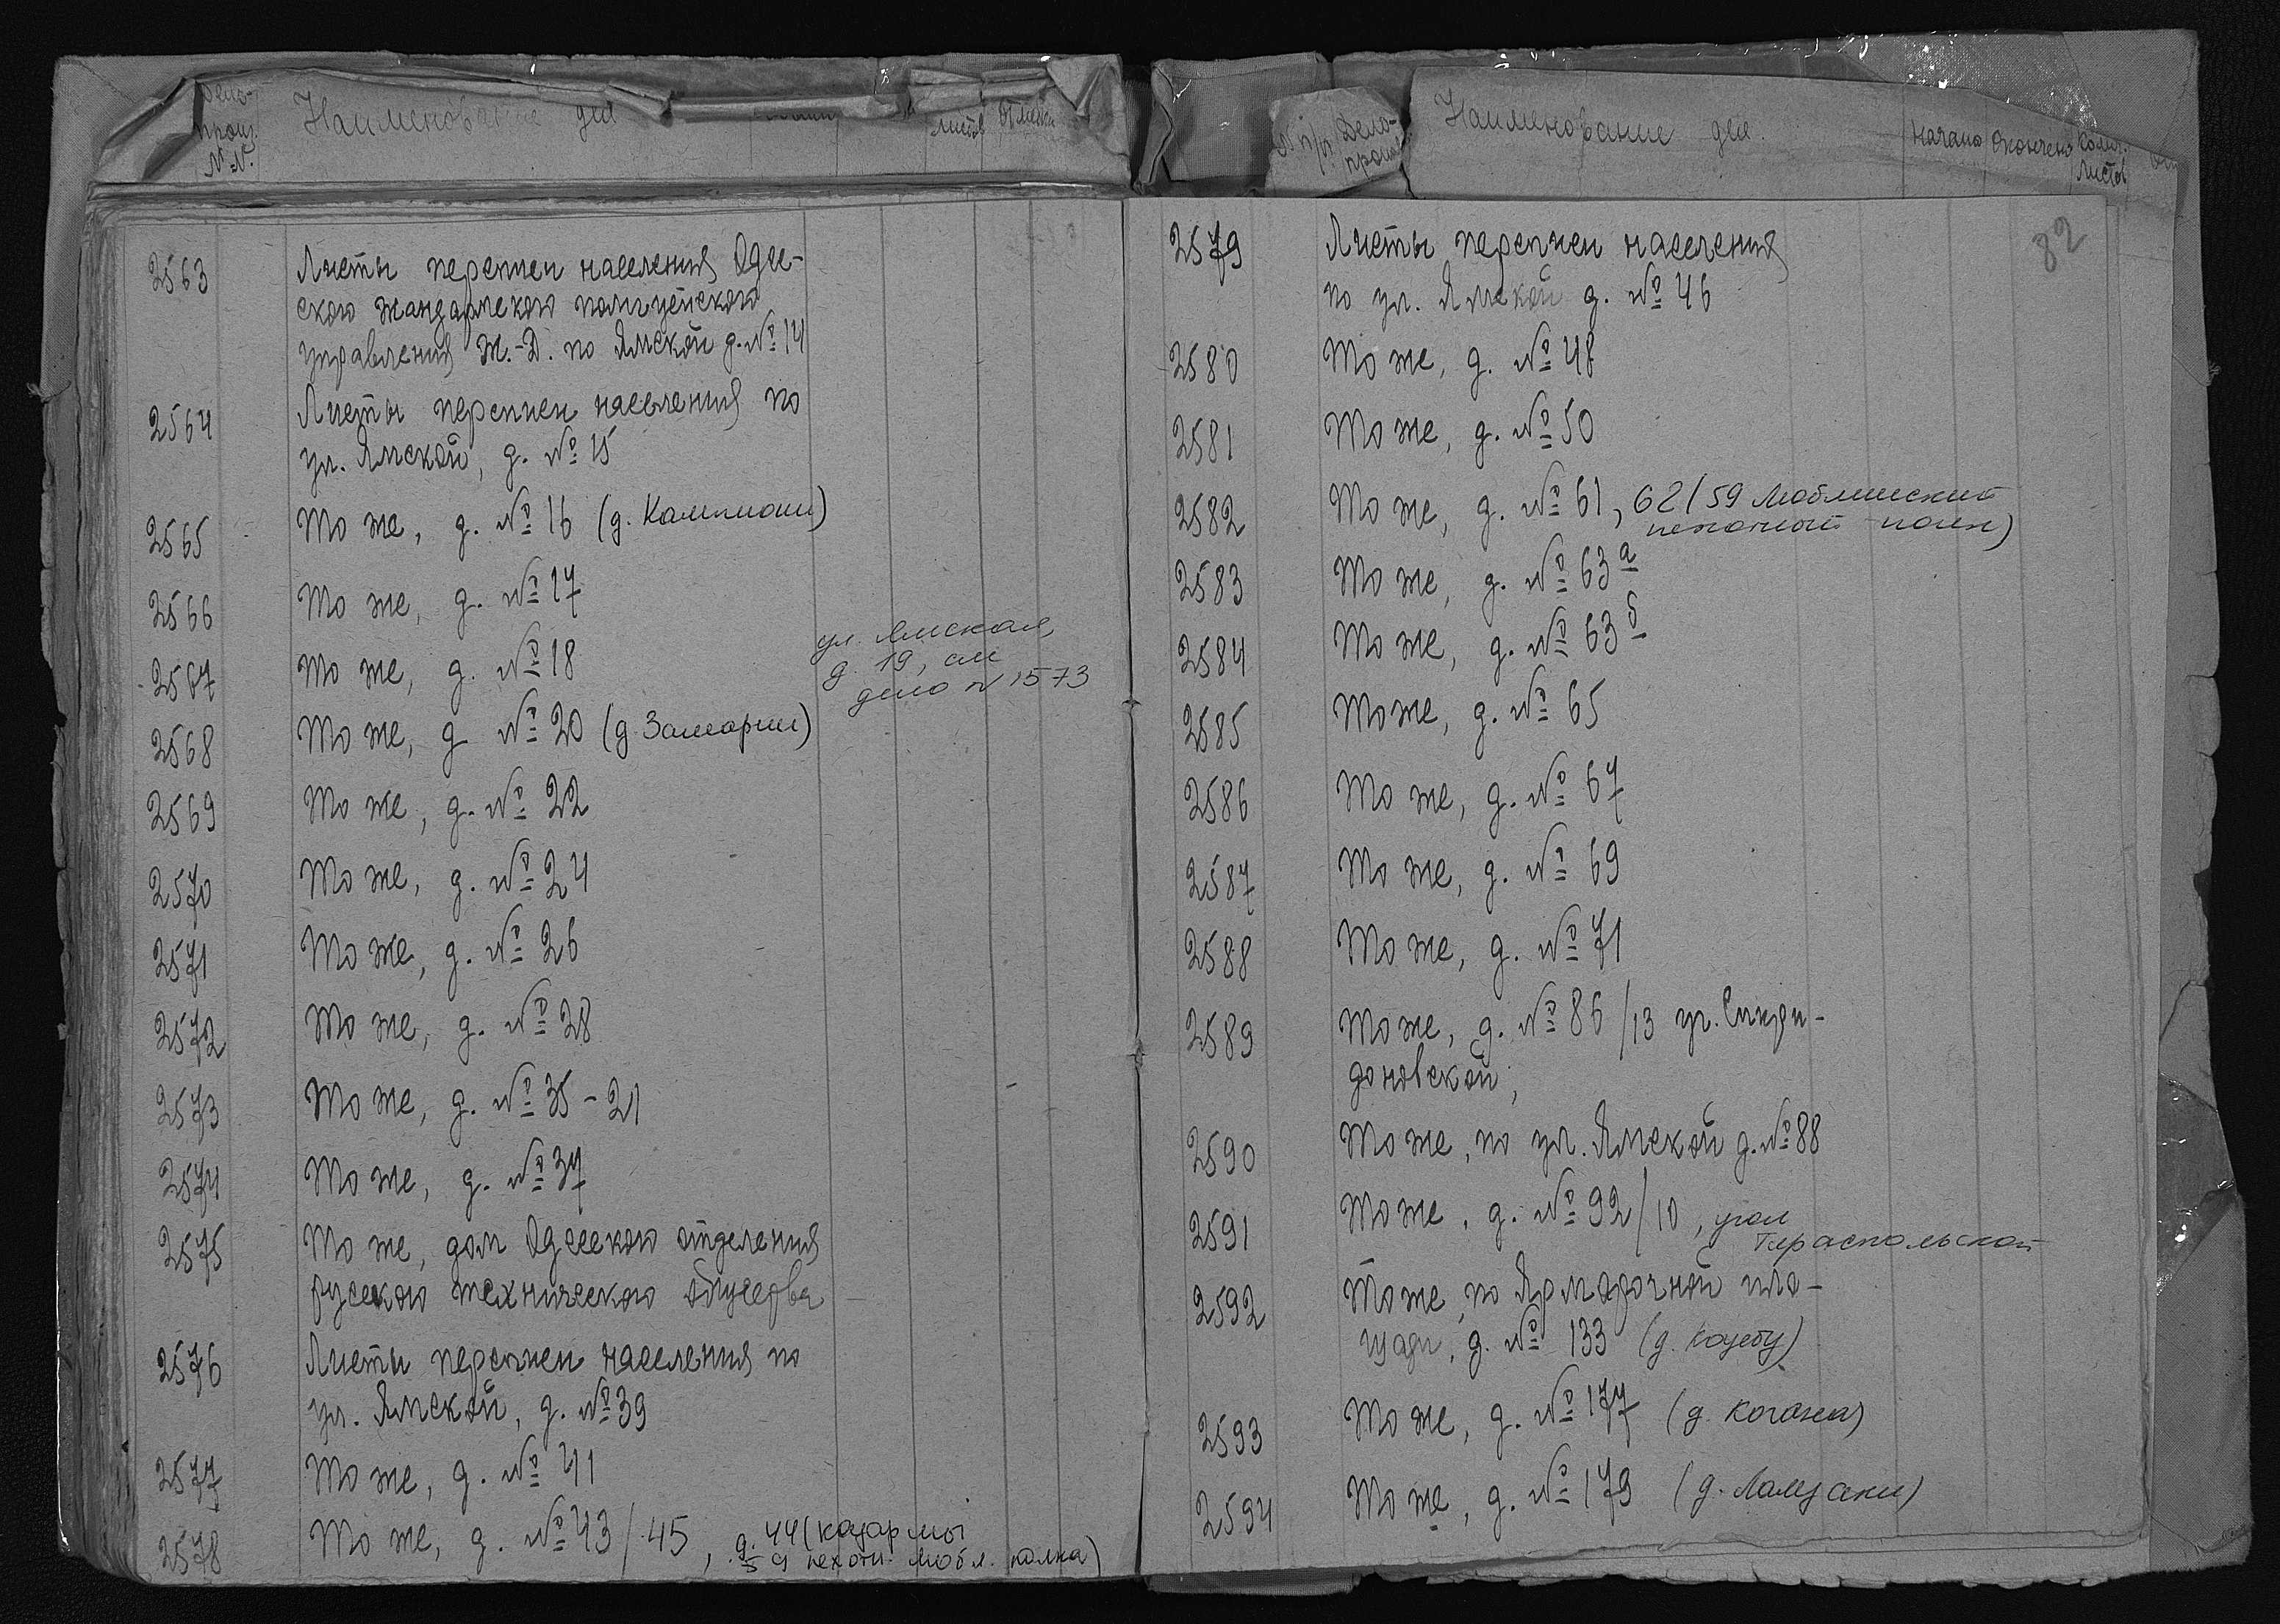 Дело-
произ.
№№
Наименование дел
листов
Отметки
2563 Листы переписи населения Одес-
ского жандармского полицейского
управления Ж.-Д. по Ямской д. № 14
2564 Листы переписи населения по
ул. Ямской, д. № 15
2565 То же, д. № 16 (д. Кампиони)
2566 То же, д. № 17
2567 То же, д. № 18
ул. Ямская,
д. 19, см
дело № 1573
2568 То же, д № 20 (д. Замарии)
2569 То же, д. № 22
2570 То же, д. № 24
2571 То же, д. № 26
2572 То же, д. № 28
2573 То же, д. № 35-21
2574 То же, д. № 37
2575 То же, дом Одесского отделения
русского технического общества
2576 Листы переписи населения по
ул. Ямской, д. № 39
2577 То же, д. № 41
2578 То же, д. № 43/45, д. 44 (казармы
59 пехотн. Любл. полка)
№ п/п
Дело-
произ
Наименование дел
Начало
Окончено
Колич.
листов
82
2579 Листы переписи населения
по ул. Ямской д. № 46
2580 То же, д. № 48
2581 То же, д. № 50
2582 То же, д. № 61, 62 (59 Люблинский
пехотный полк)
2583 То же, д. № 63 а
2584 То же, д. № 63 б
2585 То же, д. № 65
2586 То же, д. № 67
2587 То же, д. № 69
2588 То же, д. № 71
2589 То же, д. № 86/13 уг. Спири-
доновской,
2590 То же, по ул. Ямской д. № 88
2591 То же, д. № 92/10, угол
Тираспольской
2592 То же, по Ярмарочной пло-
щади, д. № 133 (д. Коцебу)
2593 То же, д. № 177 (д. Когана)
2594 То же, д. № 179 (д. Ламзаки)